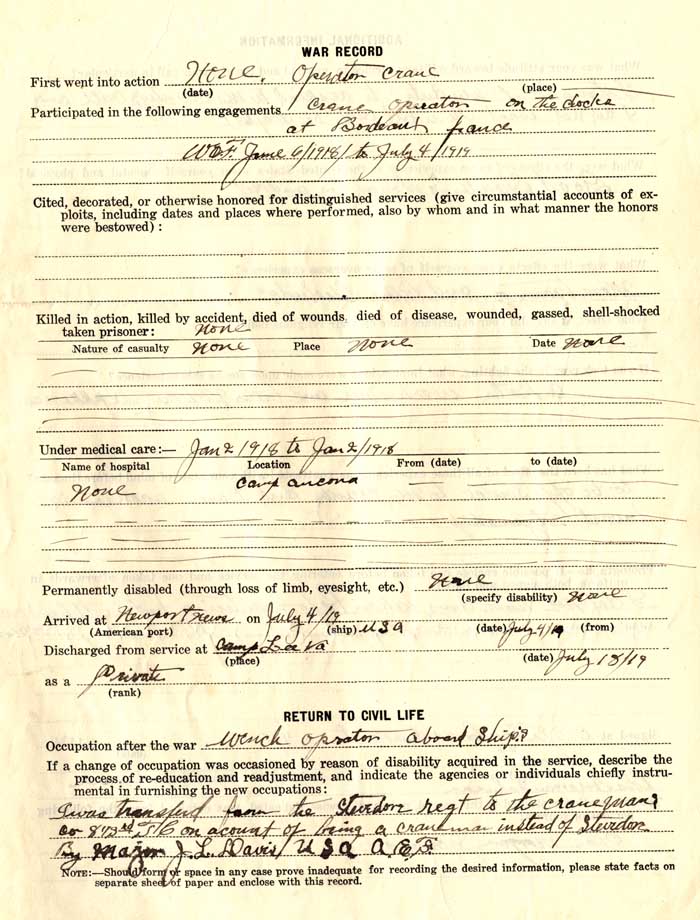 WAR RECORD
First went into action None. Operaton Crane
(date) (place)
Participated in the following engagements Crane operaton on the docks
at Bordeaux france
June 6/1918/ to July 4/1919
Cited, decorated, or otherwise honored for distinguished services (give circumstantial accounts of ex-
ploits, including dates and places where performed, also by whom and in what manner the honors
were bestowed) :
Killed in action, killed by accident, died of wounds, died of disease, wounded, gassed, shell-shocked
taken prisoner: None
Nature of casualty None Place None Date None
Under medical care:— Jan 2 1918 to Jan 2/1918
Name of hospital Location From (date) to (date)
None Camp ancona
Permanently disabled (through loss of limb, eyesight, etc.) None
(specify disability) None
Arrived at Newport news on July 4/19
(American port) (ship) USA (date) July 4/19 (from)
Discharged from service at Camp Lee Va
(place) (date) July 18/19
as a Private
(rank)
RETURN TO CIVIL LIFE
Occupation after the war Wench oprator aboard Ships
If a change of occupation was occasioned by reason of disability acquired in the service, describe the
process of re-education and readjustment, and indicate the agencies or individuals chiefly instru-
mental in furnishing the new occupations:
I was transferd from the Stevedore regt to the cranemans
co on acount of being a craneman instead of Stevedore
By Major J. L. Davis/ USA A.E.F.
NOTE:—Should form or space in any case prove inadequate for recording the desired information, please state facts on
separate sheet of paper and enclose with this record.